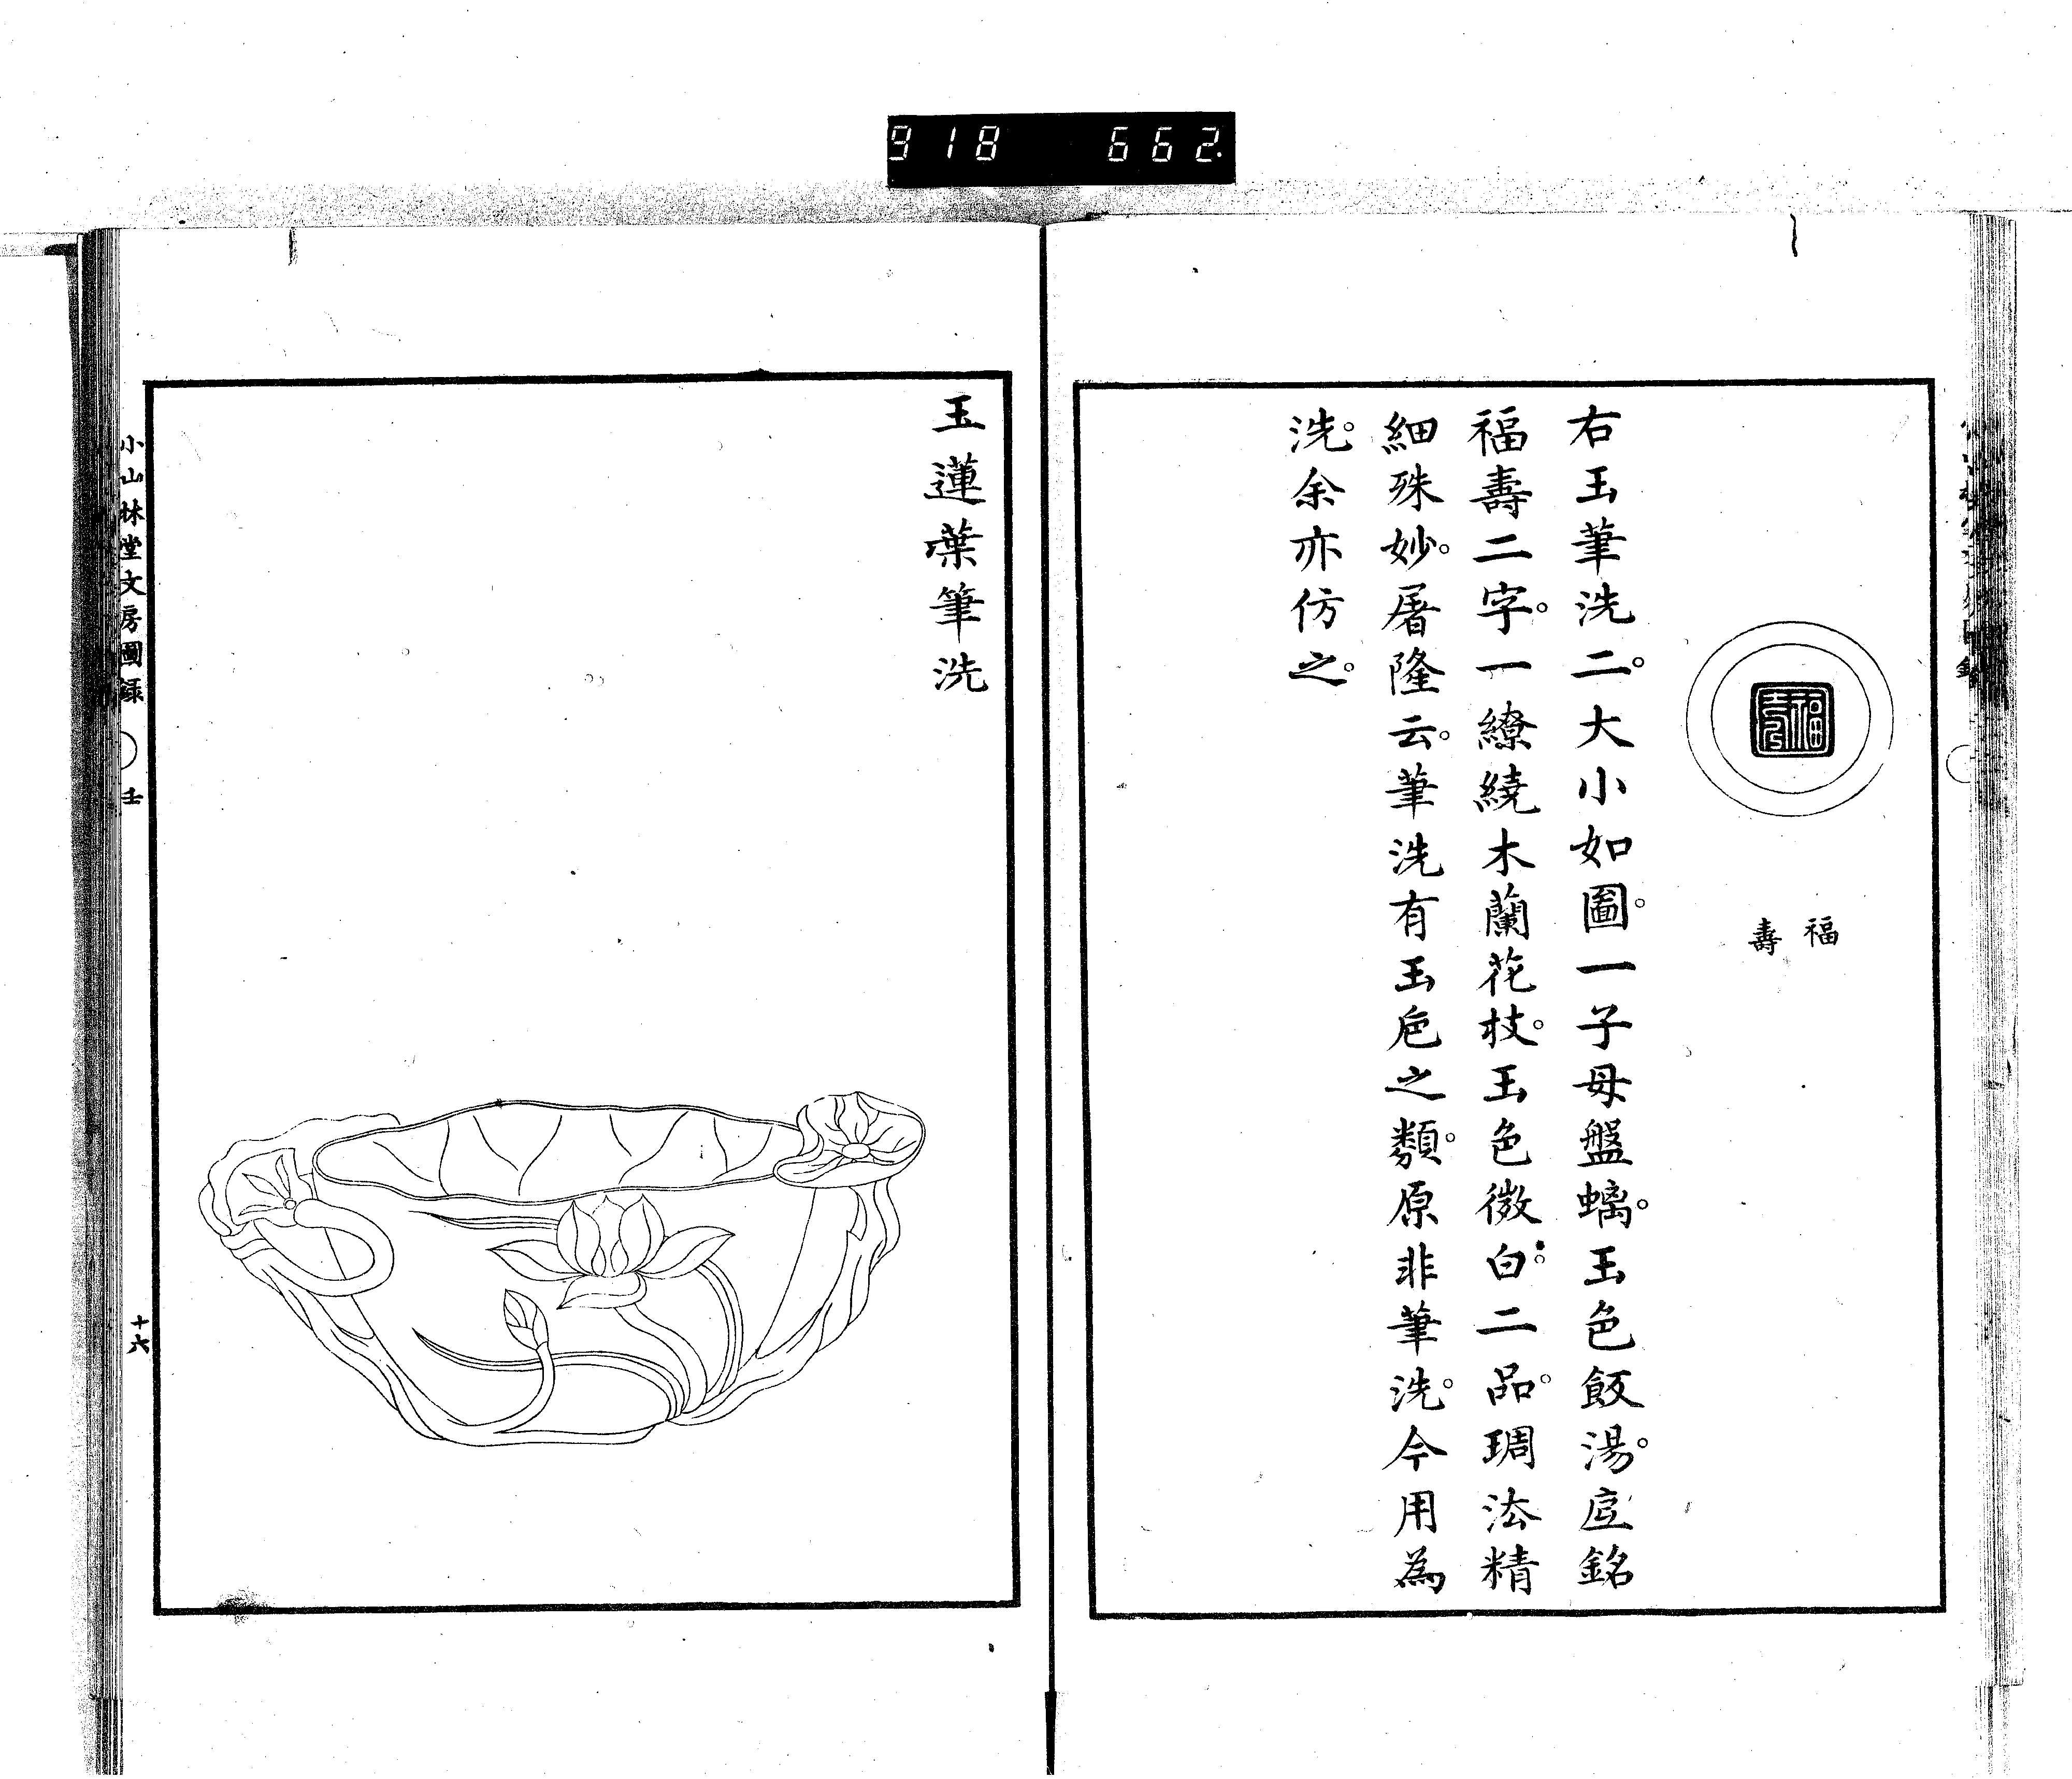 918 662
福
壽
右玉筆洗二。大小如圖。一子母盤螭。玉色飯湯。底銘
福壽二字。一繚繞木蘭花枝。玉色微白。二品。琱法精
細殊妙。屠隆云。筆洗有玉卮之類。原非筆洗。今用為
洗。余亦仿之。
玉蓮葉筆洗
小山林堂文房圖録 壬 十六